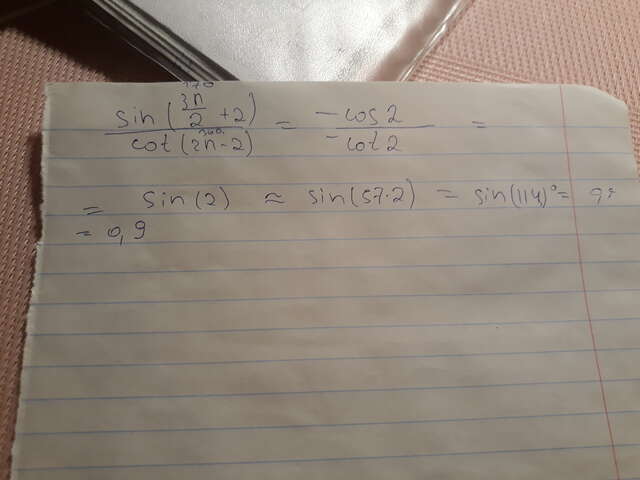 270
sin(3π/2 + 2) / cot(2π - 2) = -cos 2 / -cot 2 =
360
= sin(2) ≈ sin(57·2) = sin(114)° =
= 0,9